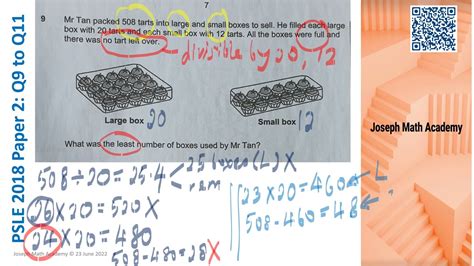 PSLE 2018 Paper 2: Q9 to Q11
7
9 Mr Tan packed 508 tarts into large and small boxes to sell. He filled each large
box with 20 tarts and each small box with 12 tarts. All the boxes were full and
there was no tart left over.
divisible by 20, 12
Large box 20
Small box 12
What was the least number of boxes used by Mr Tan?
508÷20=25.4
25 boxes (L) X
rem
26 X 20 = 520 X
24 X 20 = 480
508-480=28 X
23 X 20 = 460 L
508-460=48
Joseph Math Academy © 23 June 2022
Joseph Math Academy